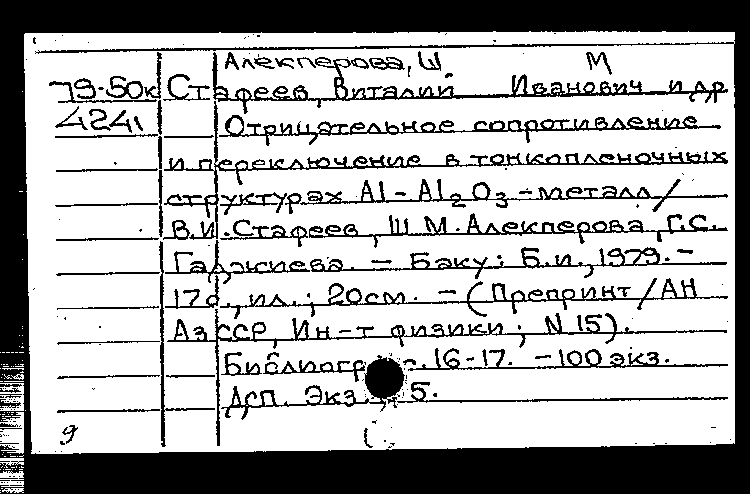 Алекперова, Ш. М
79-50к Стафеев, Виталий Иванович и др
4241 Отрицательное сопротивление
и переключение в тонкопленочных
структурах Al-Al2O3-металл/
В.И.Стафеев, Ш.М.Алекперова, Г.С.
Гаджиева. - Баку: Б.и., 1979. -
17с., ил.; 20см. - (Препринт/АН
АзССР, Ин-т физики; N 15).
с. 16-17. - 100 экз.
Дсп. Экз 5.
9